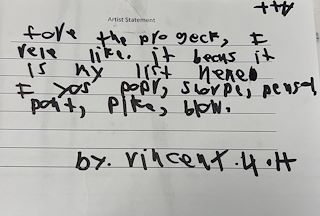 Artist Statement
fore the progeck, I
rele like. it becus it
is my list
I yos popr, scorpe, pensol,
pant, plke, blow.
by. vincent. 4.H